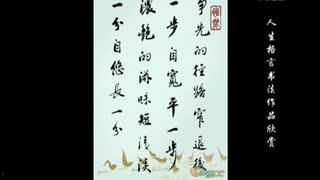 人生格言书法作品欣赏
争先的徑路窄退後
一步自寬平一步
濃艷的滋味短清淡
一分自悠長一分